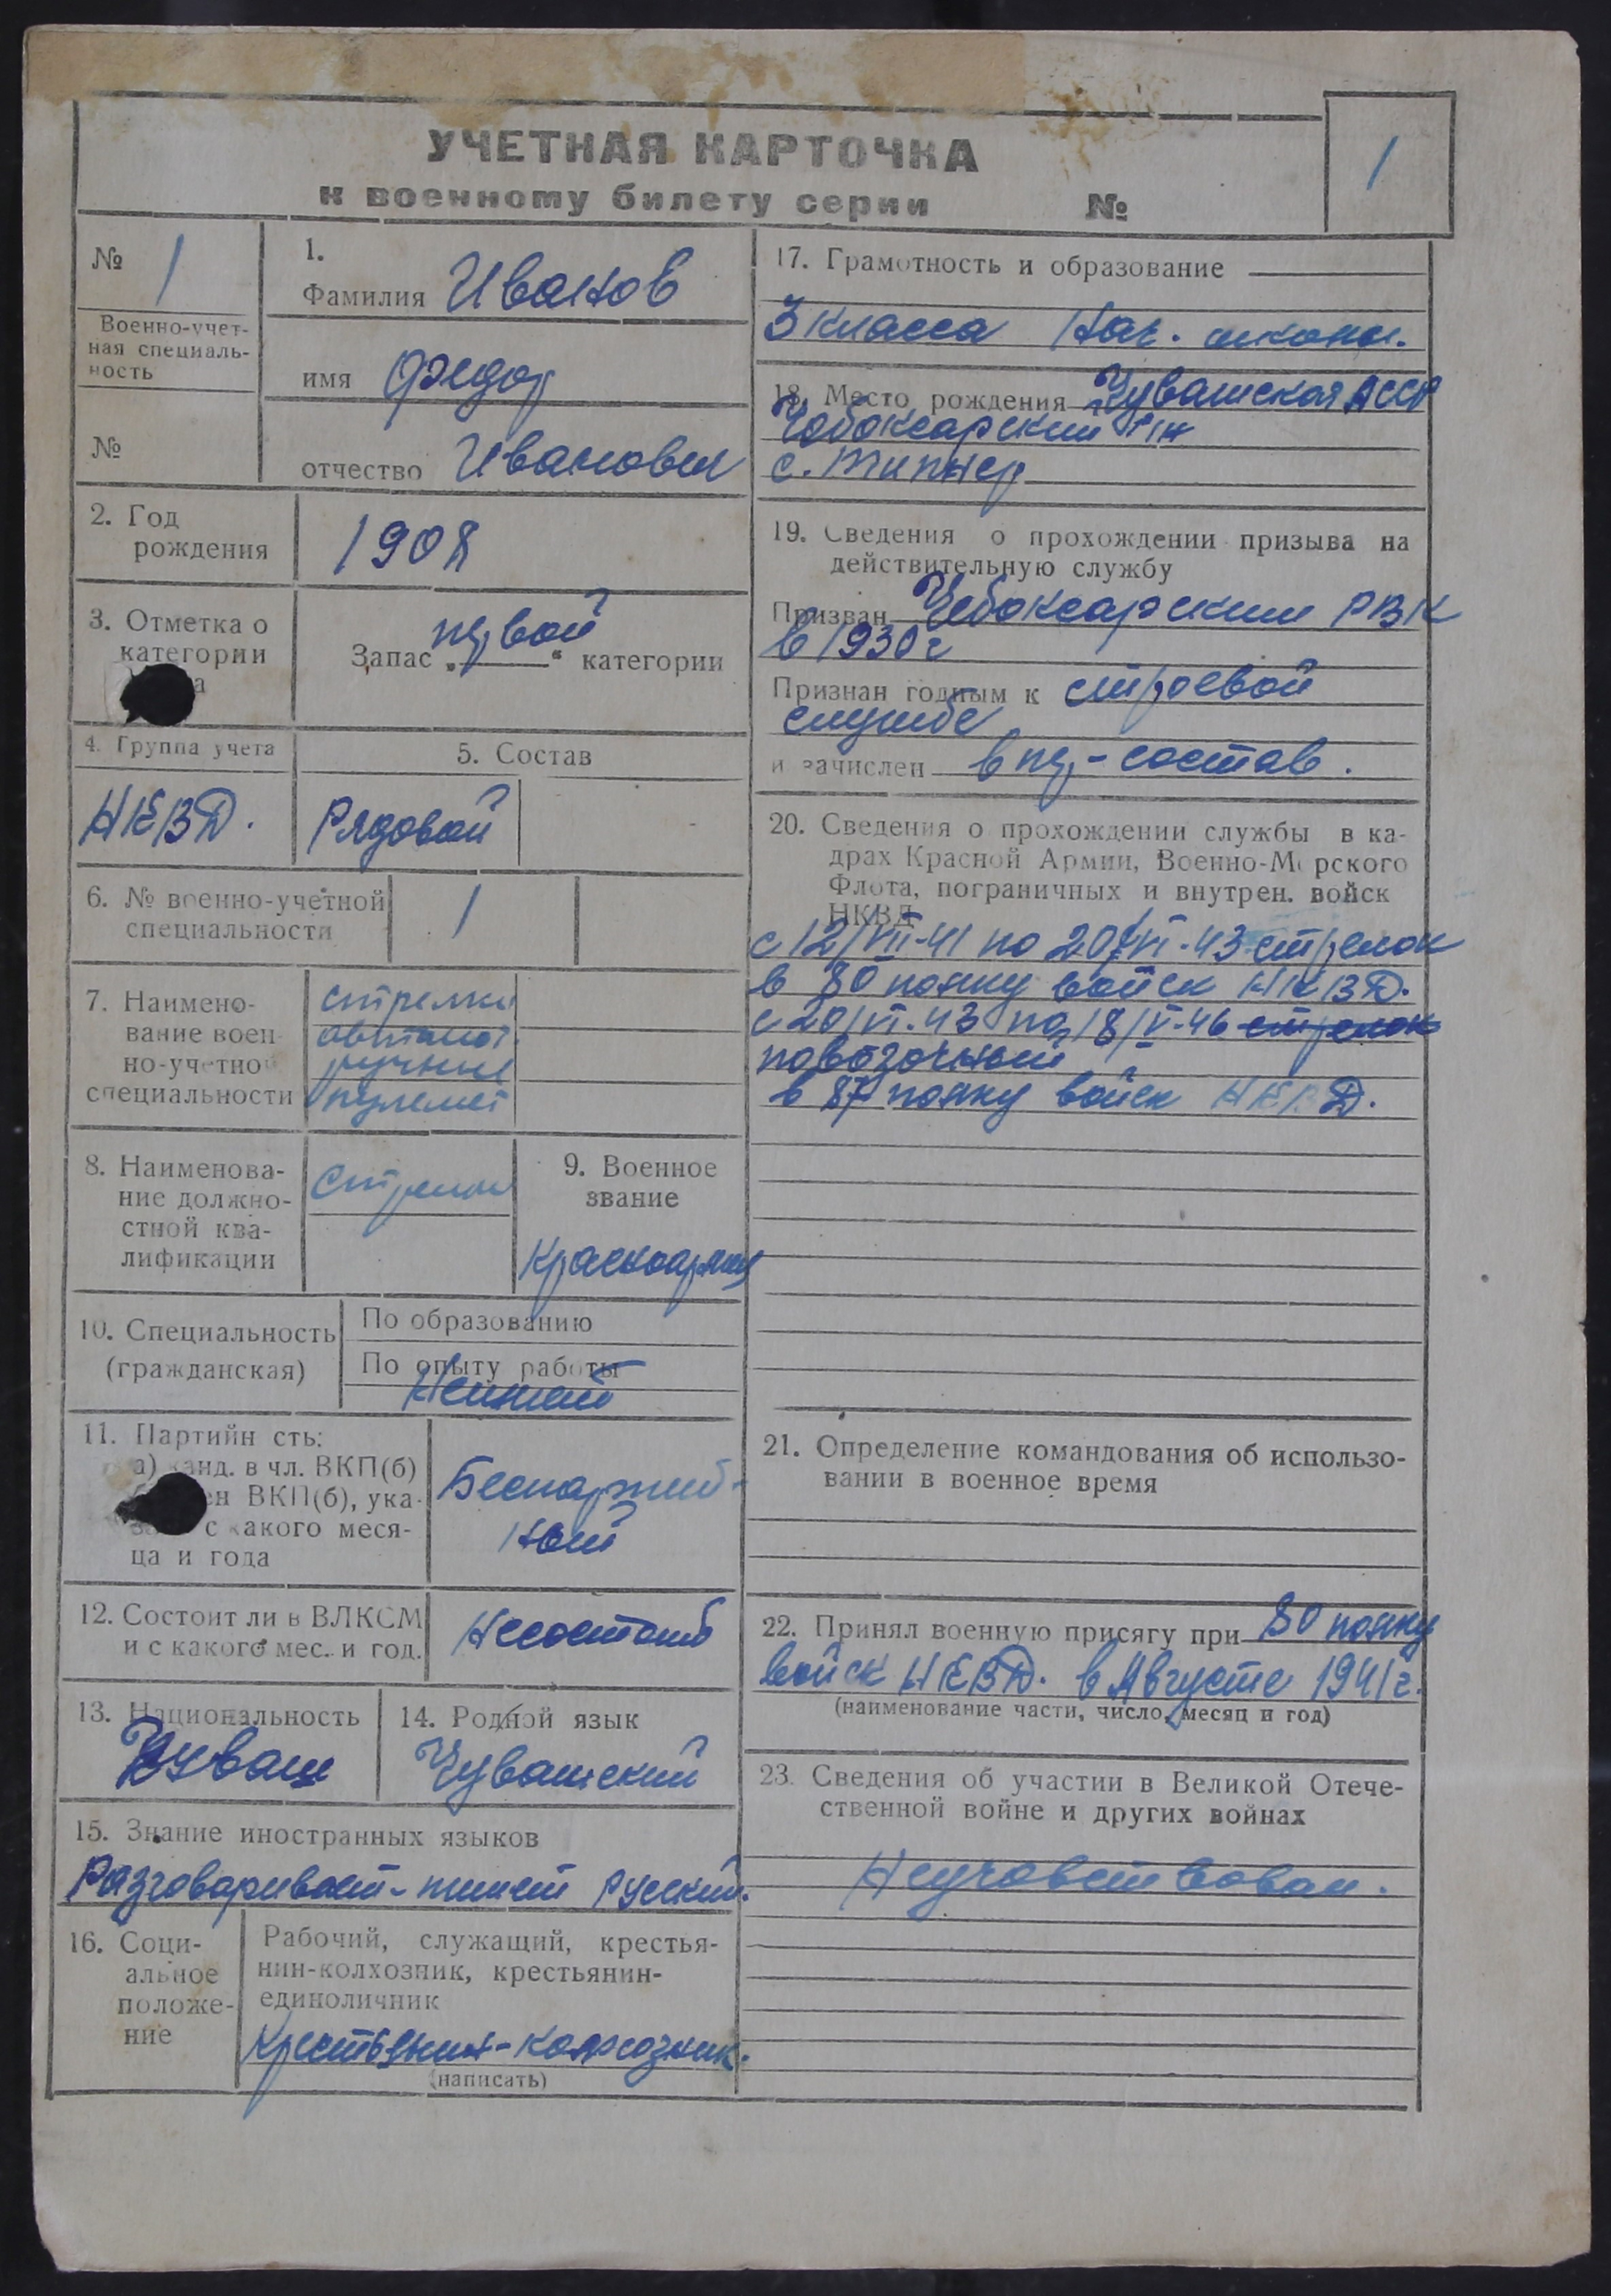 УЧЕТНАЯ КАРТОЧКА
1
к военному билету серии №
№ 1
Военно-учет-
ная специаль-
ность
№
1.
Фамилия Иванов
имя Федор
отчество Иванович
2. Год
рождения
1908
3. Отметка о
категории
Запас „первой“ категории
4. Группа учета
НКВД.
5. Состав
Рядовой
6. № военно-учетной
специальности
1
7. Наимено-
вание воен
но-учетной
специальности
стрелки
автомат.
ручные
пулемет
8. Наименова-
ние должно-
стной ква-
лификации
Стрелок
9. Военное
звание
Красноармеец
10. Специальность
(гражданская)
По образованию
По опыту работы
Неимеет
11. Партийн сть:
а) канд. в чл. ВКП(б)
ен ВКП(б), ука-
с какого меся-
ца и года
Беспартий-
ный
12. Состоит ли в ВЛКСМ
и с какого мес. и год.
Несостоит
13. Национальность
Чуваш
14. Родной язык
Чувашский
15. Знание иностранных языков
Разговаривает-пишет русский.
16. Соци-
альное
положе-
ние
Рабочий, служащий, крестья-
нин-колхозник, крестьянин-
единоличник
Крестьянин-колхозник.
(написать)
17. Грамотность и образование
3 класса нач. школы.
18. Место рождения Чувашская АССР
Чебоксарский р-н
с. Типнер
19. Сведения о прохождении призыва на
действительную службу
Призван Чебоксарским РВК
в 1930г
Признан годным к строевой
службе
и зачислен в пер-состав.
20. Сведения о прохождении службы в ка-
драх Красной Армии, Военно-Морского
Флота, пограничных и внутрен. войск
НКВД
с 12/VII-41 по 20/VI-43 стрелок
в 80 полку войск НКВД.
с 20/VI.43 по 18/V-46 стрелок
повозочный
в 87 полку войск НКВД.
21. Определение командования об использо-
вании в военное время
22. Принял военную присягу при 80 полку
войск НКВД. в Августе 1941г.
(наименование части, число, месяц и год)
23. Сведения об участии в Великой Отече-
ственной войне и других войнах
Неучавствовал.